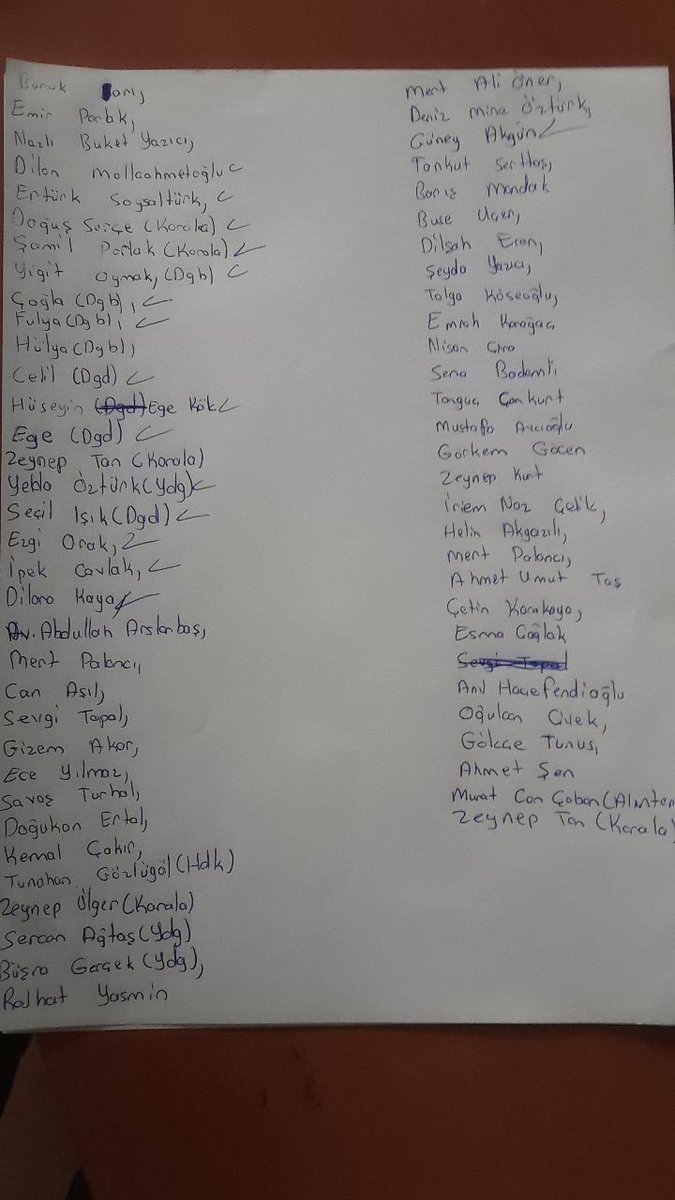 Burak
Emir Parlak,
Nazlı Buket Yazıcı,
Dilan Mollaahmetoğlu
Ertürk Soysaltürk,
Doğuş Serçe (Karala)
Şamil Parlak (Karala)
Yiğit Oymak, (Dgb)
Çağla (Dgb),
Fulya (Dgb),
Hülya (Dgb),
Celil (Dgd)
Hüseyin (Dgd) Ege Kök
Ege (Dgd)
Zeynep Tan (Karala)
Öztürk (Ydg)
Seçil Işık (Dgd)
Ezgi Orak,
İpek Cavlak,
Dilara Kaya
Av. Abdullah Arslanbaş,
Mert Palancı,
Can Aşıl,
Sevgi Topal,
Gizem Akar,
Ece Yılmaz,
Savaş Turhal,
Doğukan Ertal,
Kemal Çakır,
Tunahan Gözlügöl (Hdk)
Zeynep Ülger (Karala)
Sercan Ağtaş (Ydg)
Büşra Gerçek (Ydg),
Yasmin
Mert Ali Öner,
Deniz Mina Öztürk,
Güney Akgün
Tankut Serttaş,
Barış Mandak
Buse Uçer,
Dilşah Eren,
Şeyda Yazıcı,
Tolga Köseoğlu,
Emrah Karağaç
Nisan
Sena Bademli
Tonguç Cankurt
Mustafa Avcıoğlu
Görkem Göcen
Zeynep Kurt
İrem Naz Çelik,
Helin Akyazılı,
Mert Palancı,
Ahmet Umut Taş
Çetin Karakaya,
Esma Çağlak
Sevgi Topal
Anıl Hacefendioğlu
Oğulcan Civek,
Gökçe Tunus,
Ahmet Şen
Murat Can Çoban (Alınter
Zeynep Tan (Karala)